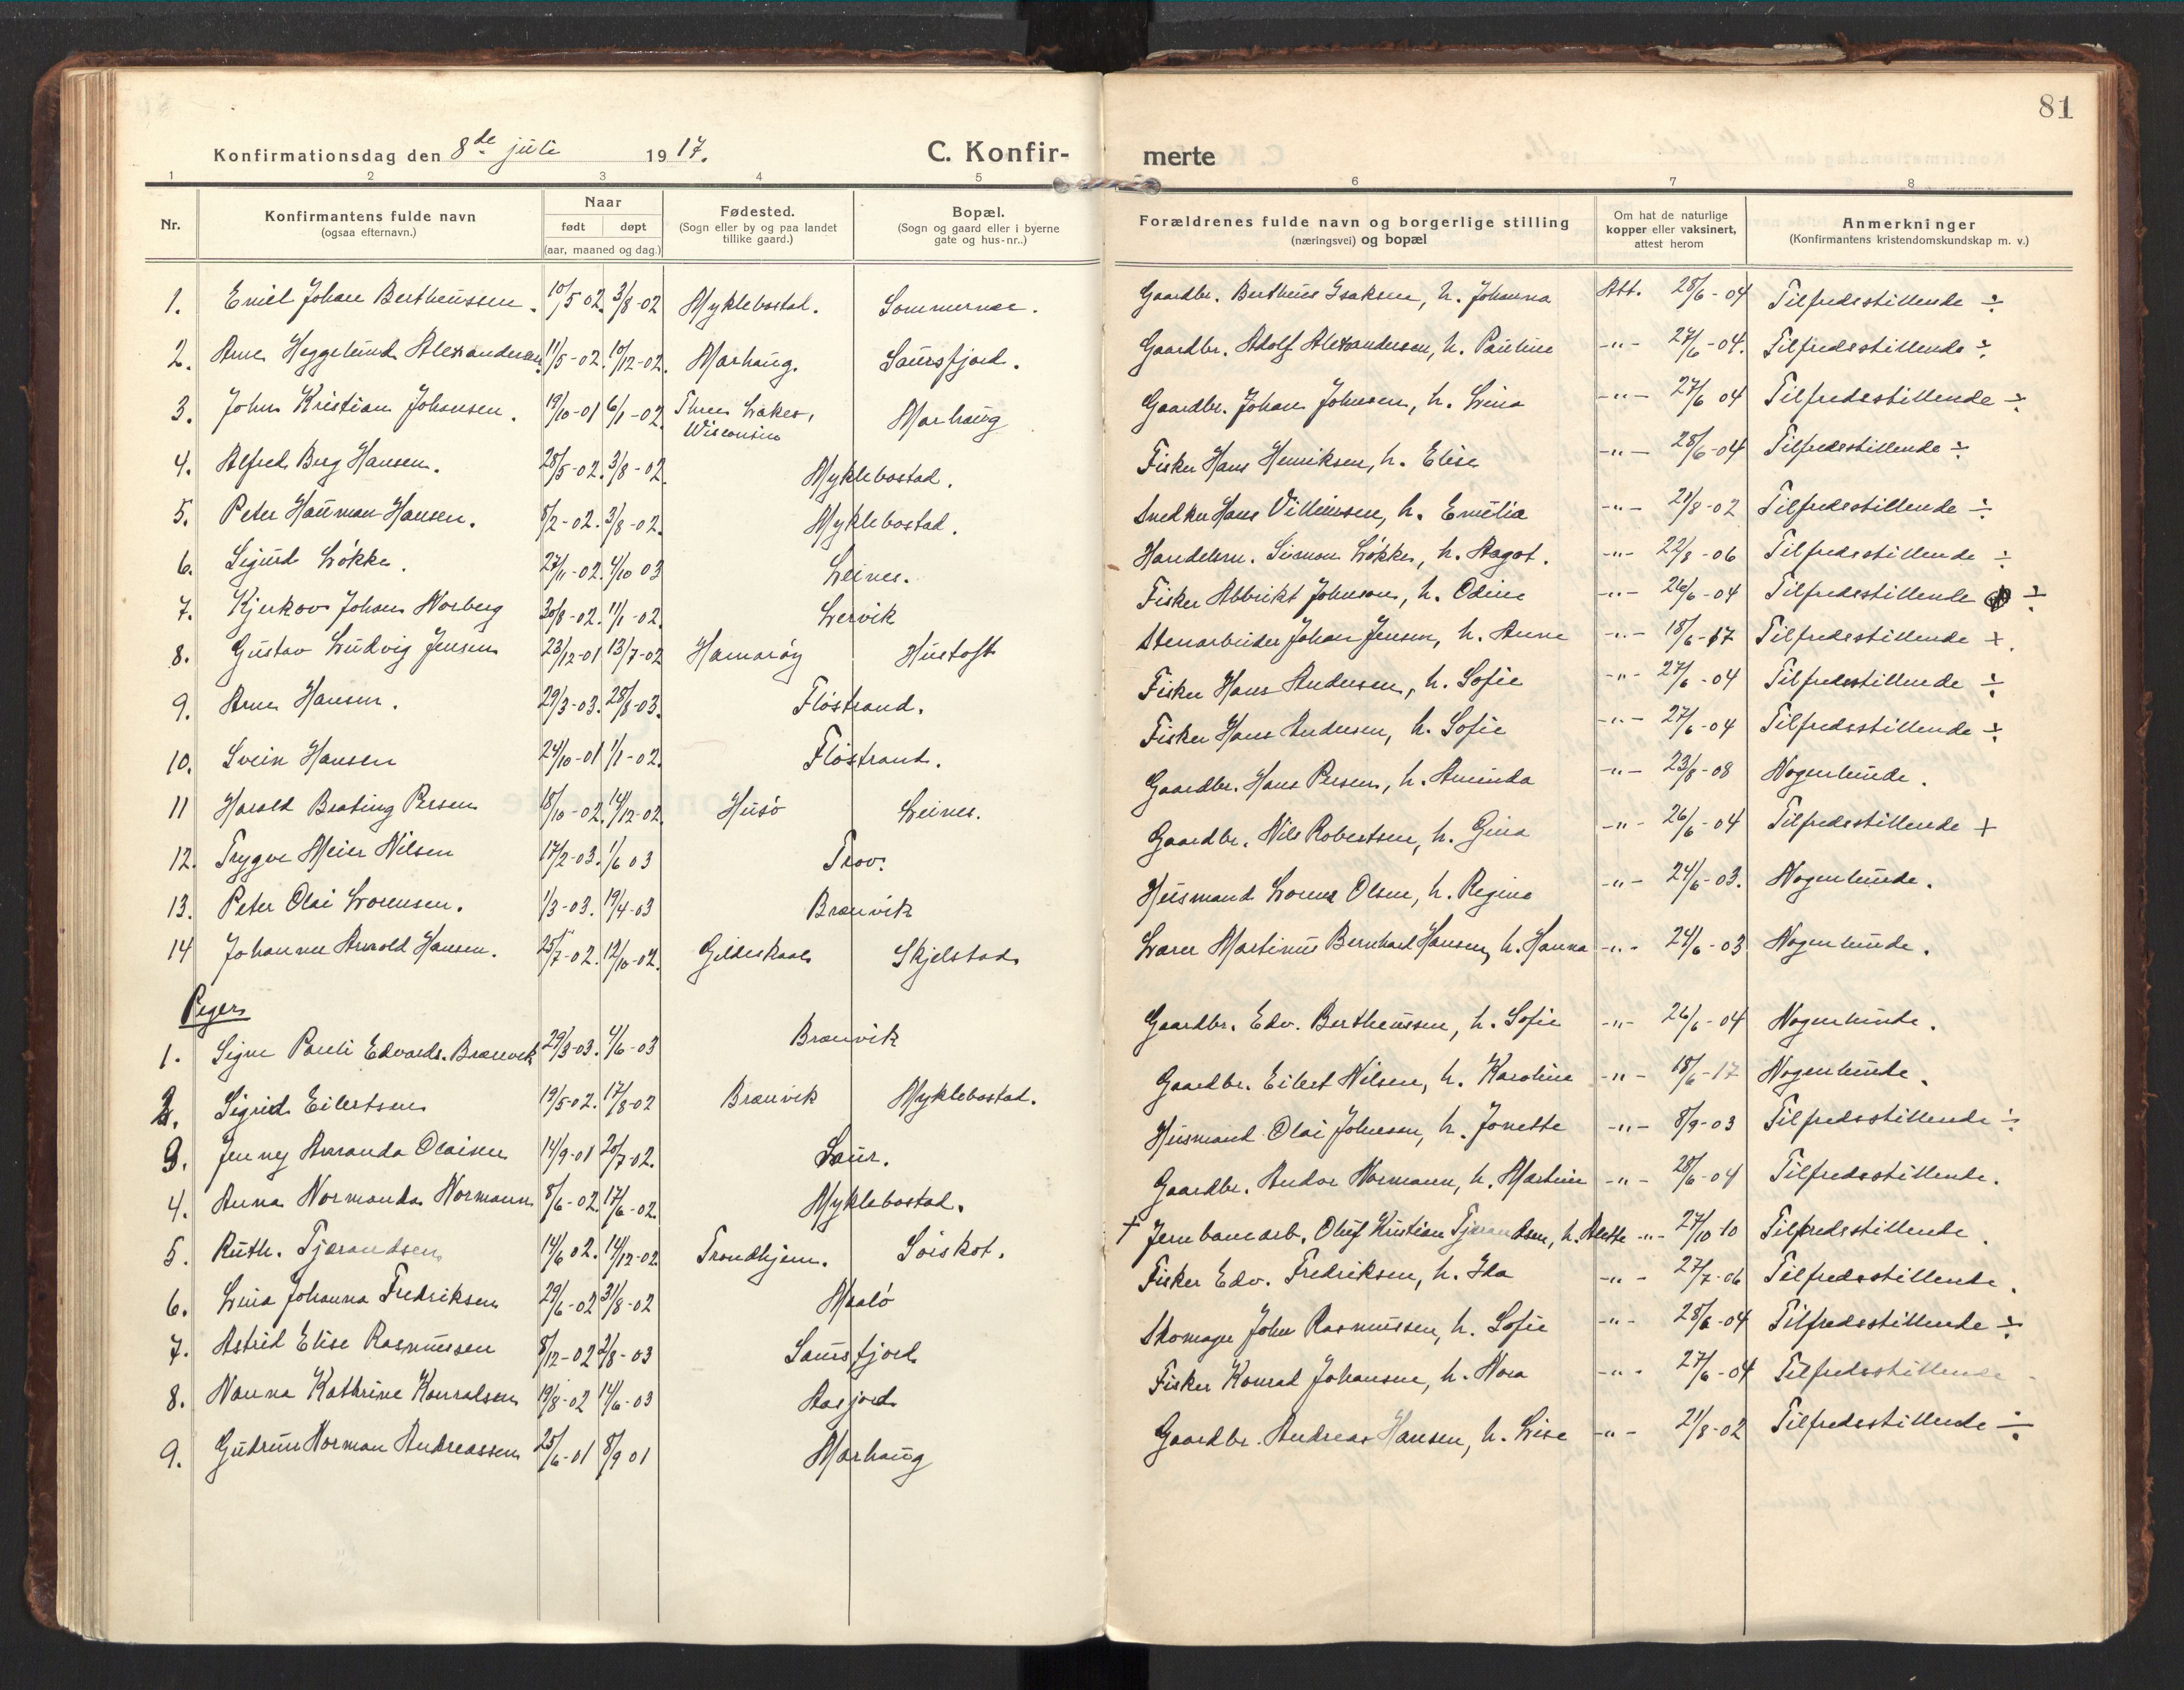 81
Konfirmationsdag den 8de juli 1917.
C. Konfir- merte
1 2 3 4 5 6 7 8
Nr.
Konfirmantens fulde navn
(ogsaa efternavn.)
Naar
født døpt
(aar, maaned og dag.)
Fødested.
(Sogn eller by og paa landet
tillike gaard.)
Bopæl.
(Sogn og gaard eller i byerne
gate og hus-nr..)
Forældrenes fulde navn og borgerlige stilling
(næringsvei) og bopæl
Om hat de naturlige
kopper eller vaksinert,
attest herom
Anmerkninger
(Konfirmantens kristendomskundskap m. v.)
1. Emil Johan Bertheussen. 10/5 02. 3/8-02 Myklebostad. Sommernes. Gaardbr. Bertheus Isaksen, h. Johanna Att. 28/6-04 Tilfredsstillende ÷
2. Arne Heggelund Alexandersen 11/5-02. 10/12-02. Marhaug. Saursfjord. Gaardbr. Adolf Alexandersen, h. Pauline -"- 27/6-04. Tilfredsstillende ÷
3. John Kristian Johansen. 19/10-01 6/1-02. Three Lakes, Wisconsin Marhaug Gaardbr. Johan Johnsen, h. Lina -"- 27/6 04 Tilfredsstillende ÷
4. Alfred Berg Hansen. 28/5-02. 3/8-02. Myklebostad. Fisker Hans Henriksen, h. Elise -"- 28/6-04 Tilfredsstillende ÷
5. Peter Hauman Hansen. 8/2-02. 3/8-02. Myklebostad. Snedker Hans Villumsen, h. Emilia -"- 21/8-02 Tilfredsstillende ÷
6. Sigurd Løkke. 27/11-02. 4/10 03 Leines. Handelsm. Simon Løkke, h. Aagot. -"- 22/8-06 Tilfredsstillende ÷
7. Johan Norberg 30/8-02. 11/1-02. Lervik Fisker Albrikt Johnson, h. Odine -"- 26/6-04 Tilfredsstillende ÷
8. Gustav Ludvig Jensen 23/12-01 13/7-02 Hamarøy Hustoft Stenarbeider Johan Jensen, h. Anne -"- 18/6-17 Tilfredsstillende +.
9. Arne Hansen. 29/3-03. 28/8-03. Fløstrand. Fisker Hans Andersen, h. Sofie -"- 27/6-04 Tilfredsstillende ÷
10. Svein Hansen 24/10-01 1/1-02. Fløstrand. Fisker Hans Andersen, h. Sofie -"- 27/6-04 Tilfredsstillende ÷
11 Harald Brating Persen 18/10-02. 14/12-02. Husø Leines. Gaardbr. Hans Persen, h. Aminda -"- 23/8-08 Nogenlunde.
12. Trygve Meier Nilsen 17/2-03. 1/6 03 Trov. Gaardbr. Nils Robertsen, h. Gina -"- 26/6-04 Tilfredsstillende +
13. Peter Olai Lorensen. 1/3-03. 19/4-03 Brænvik Husmand Lorens Olsen, h. Regine -"- 24/6-03. Nogenlunde.
14 Johannes Arnold Hansen. 25/7-02. 12/10-02. Gildeskaal Skjelstad Lærer Martinus Bernhard Hansen, h. Hanna -"- 24/6-03 Nogenlunde.
Piger
1. Signe Pauli Edvards. Brænvik 29/3-03. 4/6-03 Brænvik Gaardbr. Edv. Bertheussen, h. Sofie -"- 26/6-04 Nogenlunde.
2. Sigrid Eilertsen 19/5-02. 17/8-02 Brænvik Myklebostad. Gaardbr. Eilert Nilsen, h. Karoline -"- 18/6-17 Nogenlunde.
3. Jenny Amanda Olaisen 14/9-01 20/7-02. Saur. Husmand Olai Johnsen, h. Jonette -"- 8/9-03 Tilfredsstillende ÷
4. Anna Normanda Normann 8/6-02. 17/6-02. Myklebostad. Gaardbr. Andor Normann, h. Martine -"- 28/6-04 Tilfredsstillende.
5. Ruth. Tjærandsen 14/6 02. 14/12-02. Trondhjem. Soiskot. + Jernbanearb. Oluf Kristian Tjærandsen, h. Alette -"- 27/10 10 Tilfredsstillende.
6. Lina Johanna Fredriksen 29/6-02 31/8-02 Maalø Fisker Edv. Fredriksen, h. Ida -"- 27/7-06 Tilfredsstillende.
7. Astrid Elise Rasmussen 8/12-02 2/8-03 Saursfjord Skomager John Rasmussen, h. Sofie -"- 28/6-04 Tilfredsstillende ÷
8. Nanna Kathrine Konradsen 19/8-02 14/6-03 Aasjord Fisker Konrad Johansen, h. Nora -"- 27/6-04 Tilfredsstillende
9. Gudrun Norman Andreassen 25/6-01 8/9 01 Marhaug Gaardbr. Andreas Hansen, h. Lise -"- 21/8-02 Tilfredsstillende ÷